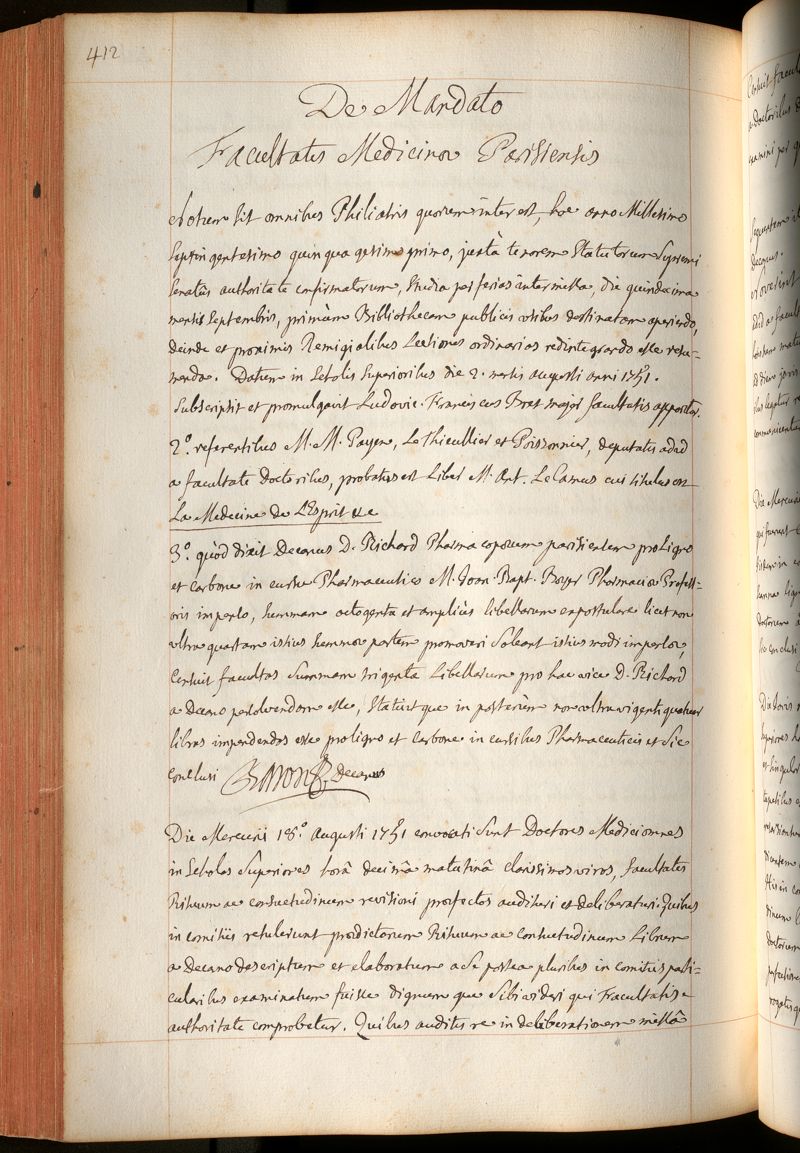 412
De Mandato
Facultatis Medicinæ Parisiensis
Notum sit omnibus Philiatris quorum interest, hoc anno Millesimo
Septingentesimo quinquagesimo primo, juxtà tenorem Statutorum Supremi
Senatûs authoritate confirmatorum, Studia per ferias intermissa, die quindecima
mensis Septembris, primùm Bibliothecam publicis usibus destinatam aperiendo,
deinde et proximis Remigialibus Lectiones ordinarias redintegrando esse resu-
menda. Datum in Scholis Superioribus die 2. mensis augusti anni 1751.
Subscripsit et promulgavit Ludovic. Franciscus Bret major facultatis apparitor.
2.º referentibus M. M. Payen, Le Thieullier et Poissonnier, deputatis ad id
a facultate Doctoribus, probatus est Liber M. Ant. Le Camus cui titulus est
La Medecine de L'Esprit &c
3.º quòd dixit Decanus D. Richard Pharmacopœum parisiensem pro Ligno
et Carbone in cursu Pharmaceutico M. Joan. Bapt. Boyer Pharmaciæ Profess-
oris impenso, summam octogenta et ampliùs libellarum expostulare licet non
ultra quartam istius summæ partem promoveri Soleant istius modi impensæ,
Censuit facultas Summam triginta Libellarum pro hac vice D. Richard
a Decano persolvendam esse, Statuitque in posterùm non ultra viginti quatuor
libras impendendas esse pro ligno et Carbone in cursibus Pharmaceuticis et Sic
conclusi Baron Decanus
Die Mercurii 18.º Augusti 1751 convocati Sunt Doctores Medici omnes
in Scholas Superiores horâ decimâ matutinâ clarissimos viros, facultatis
Rituum ac consuetudinum revisioni præfectos audituri et deliberaturi. Quibus
in comitiis retulerunt prædictorum Rituum ac Consuetudinum Librum
a Decano descriptum et elaboratum a Se postea pluribus in comitiis parti-
cularibus examinatum fuisse dignum que Sibi videri qui Facultatis
authoritate comprobetur. Quibus auditis re in deliberationem missâ